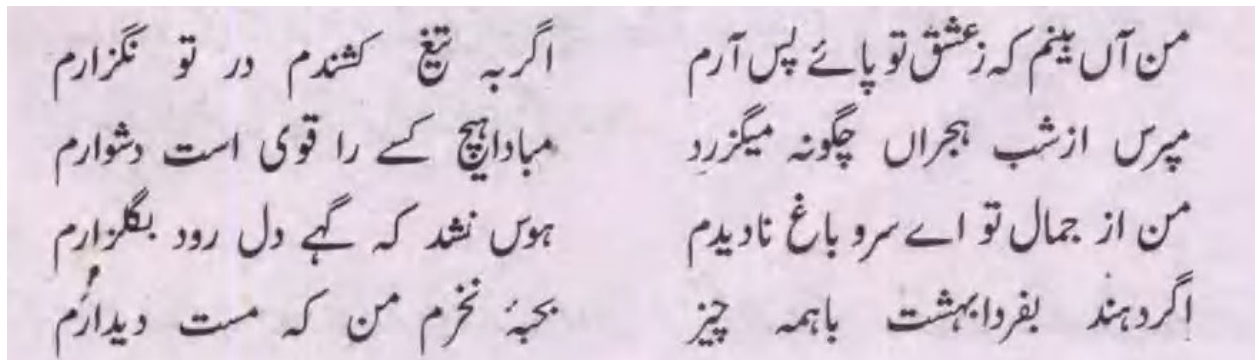 من آں بینم کہ زعشق تو پائے پس آرم اگر بہ تیغ کشندم در تو نگزارم
مپرس ازشب ہجراں چگونہ میگزرد مباداہیچ کسے را قوی است دشوارم
من از جمال تو اے سرو باغ نادیدم ہوس نشد کہ گہے دل رود بگلزارم
اگردہند بفردابہشت باہمہ چیز بحبۂ نخرم من کہ مست دیدارم